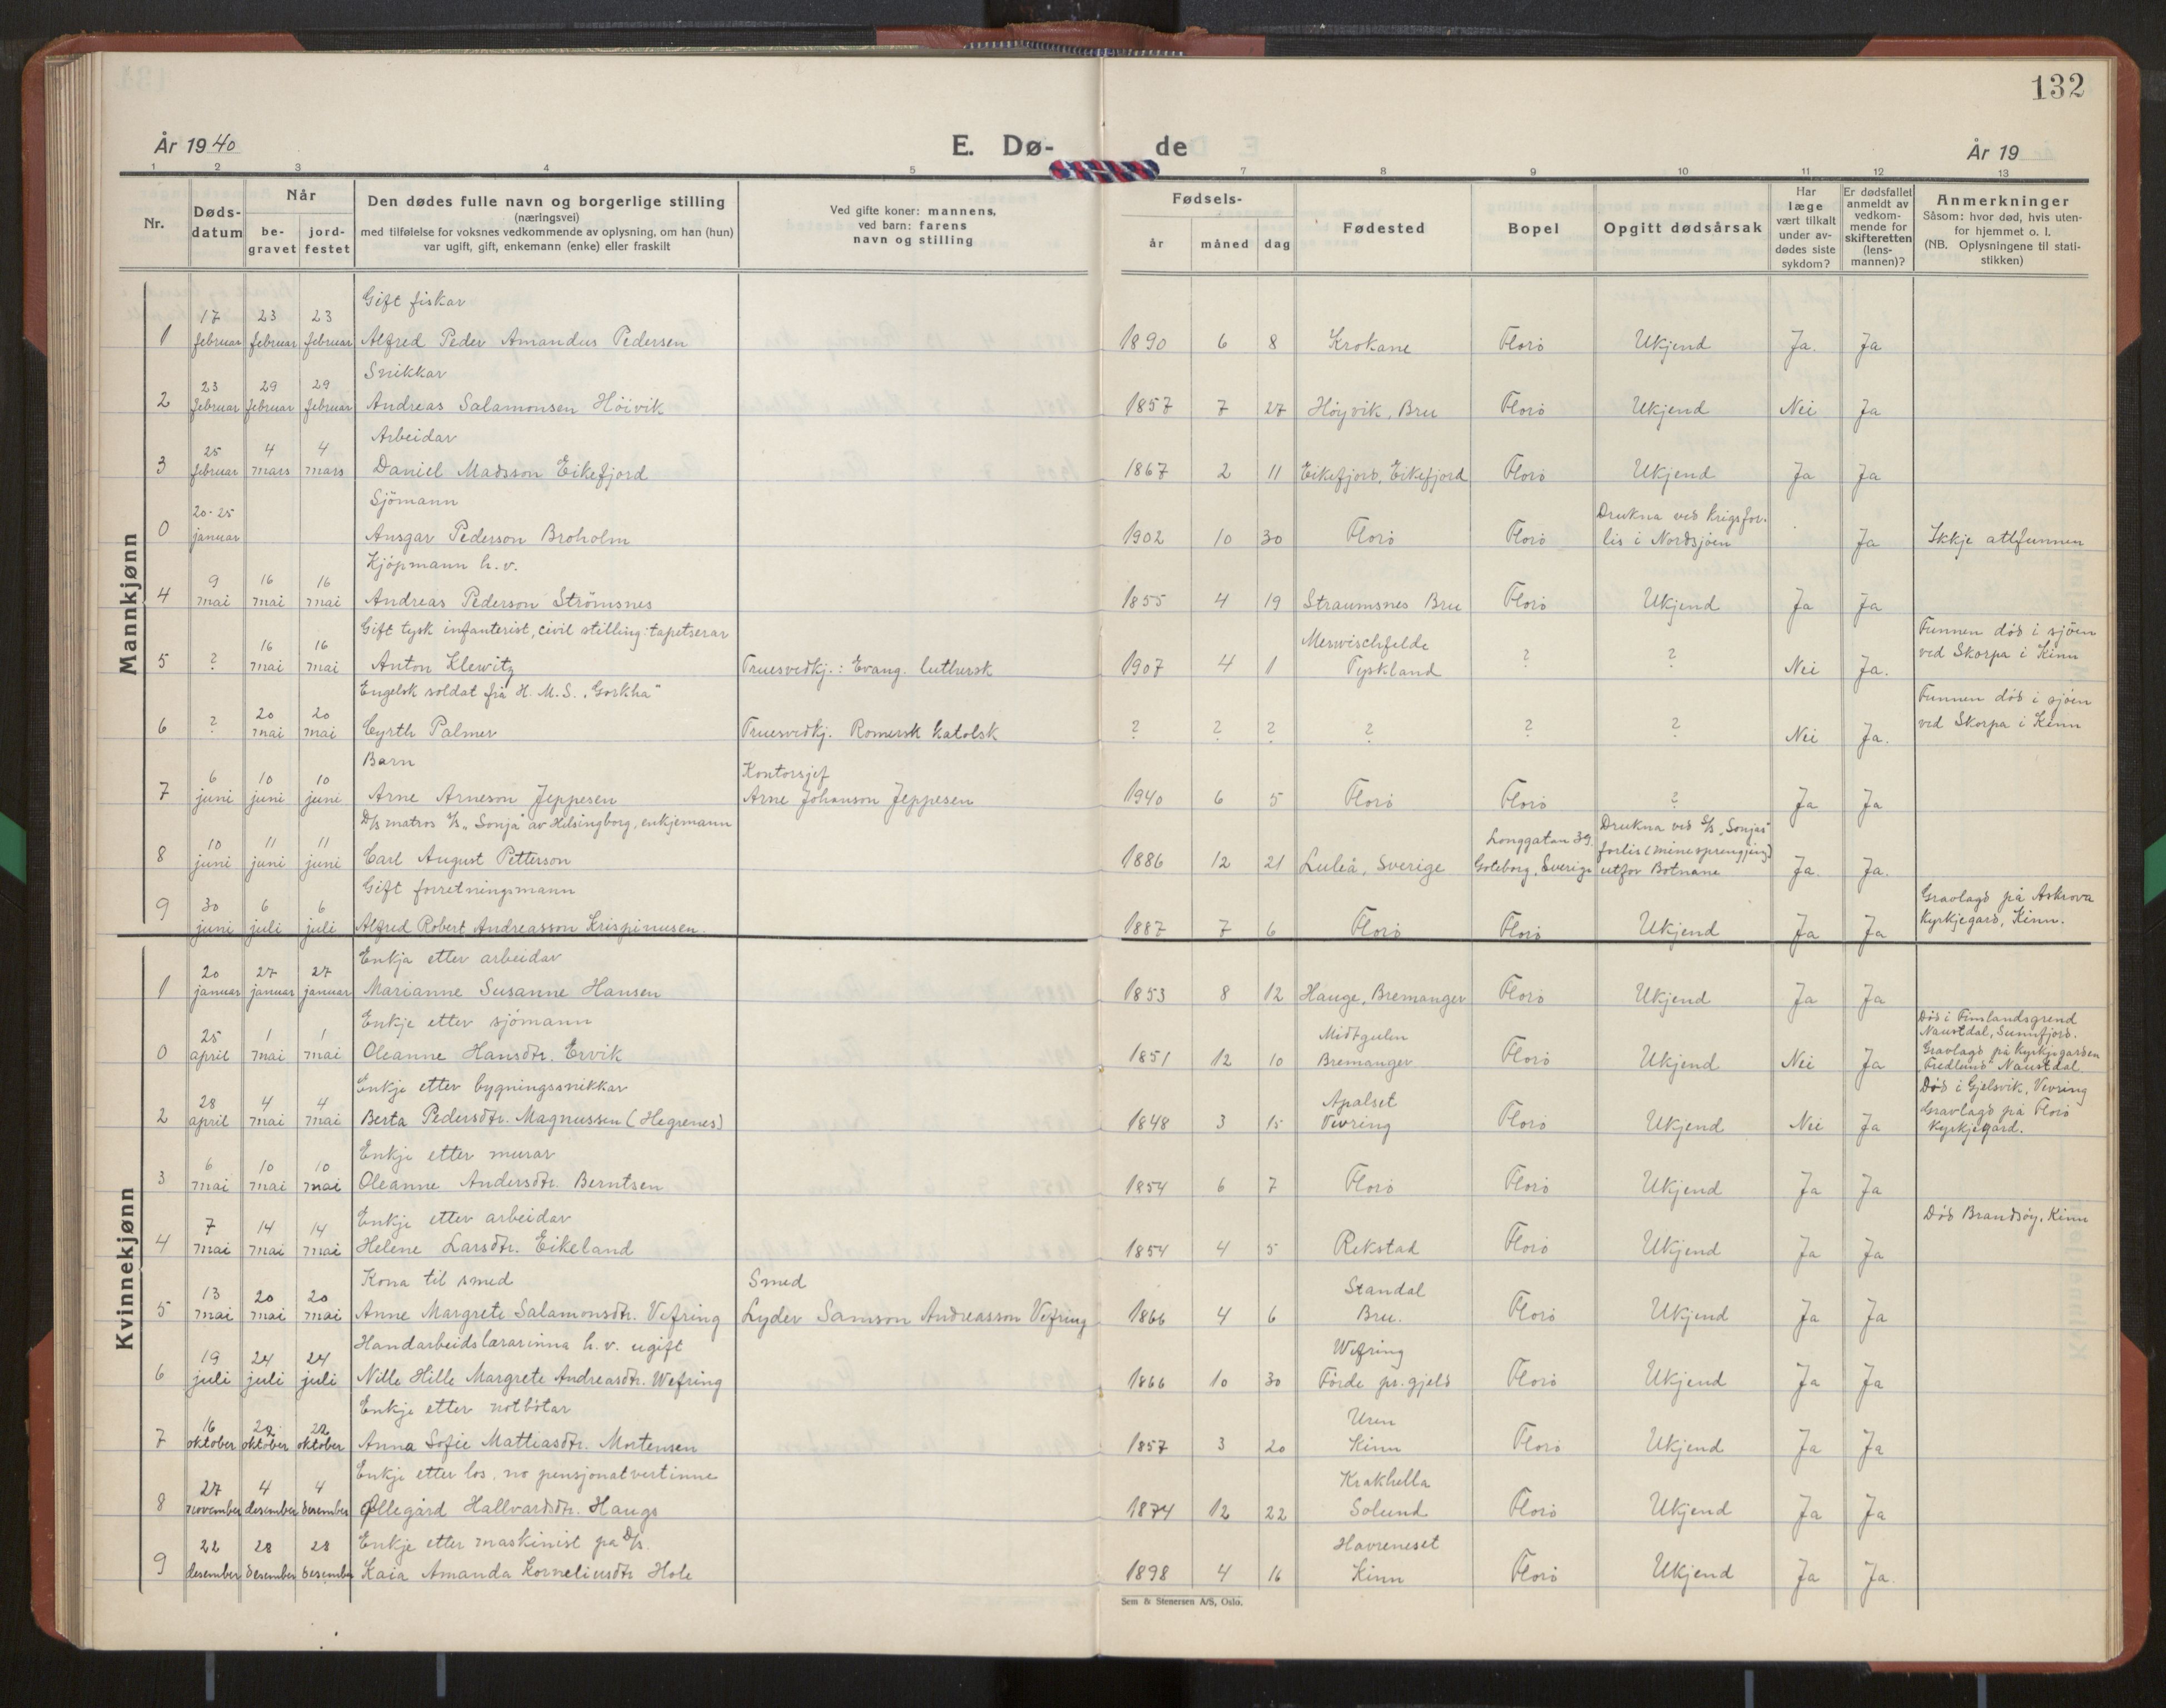 132
År 1940
E. Dø-
de
År 19
1 2 3 4 5 7 8 9 10 11 12 13
Nr.
Døds-
datum
Når
be-
gravet
jord-
festet
Den dødes fulle navn og borgerlige stilling
(næringsvei)
med tilføielse for voksnes vedkommende av oplysning, om han (hun)
var ugift, gift, enkemann (enke) eller fraskilt
Ved gifte koner: mannens,
ved barn: farens
navn og stilling
Fødsels-
år måned dag
Fødested
Bopel
Opgitt dødsårsak
Har
læge
vært tilkalt
under av-
dødes siste
sykdom?
Er dødsfallet
anmeldt av
vedkom-
mende for
skifteretten
(lens-
mannen)?
Anmerkninger
Såsom: hvor død, hvis uten-
for hjemmet o. l.
(NB. Oplysningene til stati-
stikken)
Mannkjønn
Gift fiskar
1 17 februar 23 februar 23 februar Alfred Peder Amandus Pedersen 1890 6 8 Krokane Florö Ukjend Ja. Ja
Snikkar
2 23 februar 29 februar 29 februar Andreas Salamonsen Höivik 1857 7 27 Höyvik, Bru Florö Ukjend Nei Ja
Arbeidar
3 25 februar 4 mars 4 mars Daniel Madsson Eikefjord 1867 2 11 Eikefjord, Eikefjord Florö Ukjend Ja Ja
Sjömann
0 20-25 januar Ansgar Pederson Broholm 1902 10 30 Florö Florö Drukna ved krigsfor-
lis i Nordsjöen Ja Ikkje attfunnen
Kjöpmann h. v.
4 9 mai 16 mai 16 mai Andreas Pederson Strömsnes 1855 4 19 Straumsnes Bru Florö Ukjend Ja Ja
Gift tysk infanterist, civil stilling: tapetserar
5 ? 16 mai 16 mai Anton Klewitz Truesvedkj.: Evang. luthersk 1907 4 1 Merwischfelde
Tyskland ? ? Nei Ja. Funnen död i sjöen
ved Skorpa i Kinn
Engelsk soldat frå H. M. S. „Gorkha"
6 ? 20 mai 20 mai Cyrth Palmer Truesvedkj. Romersk katolsk ? ? ? ? ? ? Nei Ja. Funnen död i sjöen
ved Skorpa i Kinn
Barn
Kontorsjef
7 6 juni 10 juni 10 juni Arne Arneson Jeppesen Arne Johanson Jeppesen 1940 6 5 Florö Florö ? Ja Ja
D/s matros s/s „Sonja" av Helsingborg, enkjemann
8 10 juni 11 juni 11 juni Carl August Petterson 1886 12 21 Luleå, Sverige Longgatan 39.
Göteborg, Sverige Drukna ved S/s „Sonjas"
forlis (minesprengjing)
utfor Botnane Ja. Ja.
Gift forretningsmann
9 30 juni 6 juli 6 juli Alfred Robert Andreasson Krispinusen. 1887 7 6 Florö Florö Ukjend Ja Ja Gravlagd på Askrova
Kyrkjegard, Kinn.
Kvinnekjønn
Enkja etter arbeidar
1 20 januar 27 januar 27 januar Marianne Susanne Hansen 1853 8 12 Hauge, Bremanger Florö Ukjend Ja Ja
Enkje etter sjömann
0 25 april 1 mai 1 mai Oleanne Hansdtr. Ervik 1851 12 10 Midtgulen
Bremanger Florö Ukjend Nei Ja Död i Fimlandsgrend
Naustdal, Sunnfjord.
Gravlagd på Kyrkjegarden
Fredlund" Naustdal
Enkje etter bygningssnikkar
2 28 april 4 mai 4 mai Berta Pedersdtr. Magnussen (Hegrenes) 1848 3 15 Apalset
Vevring Florö Ukjend Nei Ja Död i Gjelsvik, Vevring
Gravlagd på Florö
Kyrkjegard.
Enkje etter murar
3 6 mai 10 mai 10 mai Oleanne Andersdtr. Berntsen 1854 6 7 Florö Florö Ukjend Ja Ja
Enkje etter arbeidar
4 7 mai 14 mai 14 mai Helene Larsdtr. Eikeland 1854 4 5 Rekstad Florö Ukjend Ja Ja Död Brandsöy, Kinn
Kona til smed
Smed
5 13 mai 20 mai 20 mai Anne Margrete Salamonsdtr. Vefring Lyder Samson Andreasson Vefring 1866 4 6 Standal
Bru. Florö Ukjend Ja Ja
Handarbeidslærarinna h. v. ugift
6 19 juli 24 juli 24 juli Nille Hille Margrete Andreasdtr. Wefring 1866 10 30 Wefring
Förde pr.gjeld Florö Ukjend Ja Ja
Enkje etter notbötar
7 16 oktober 22 oktober 22 oktober Anna Sofie Mattiasdtr. Mortensen 1857 3 20 Uren
Kinn Florö Ukjend Ja Ja
Enkje etter los, no pensjonatvertinne
8 27 november 4 desember 4 desember Øllegård Hallvardsdtr. Haugs 1874 12 22 Krakhella
Solund Florö Ukjend Ja Ja
Enkje etter maskinist på D/s.
9 22 desember 28 desember 28 desember Kaia Amanda Korneliusdtr Hole 1898 4 16 Havreneset
Kinn Florö Ukjend Ja Ja.
Sem & Stenersen A/S, Oslo.